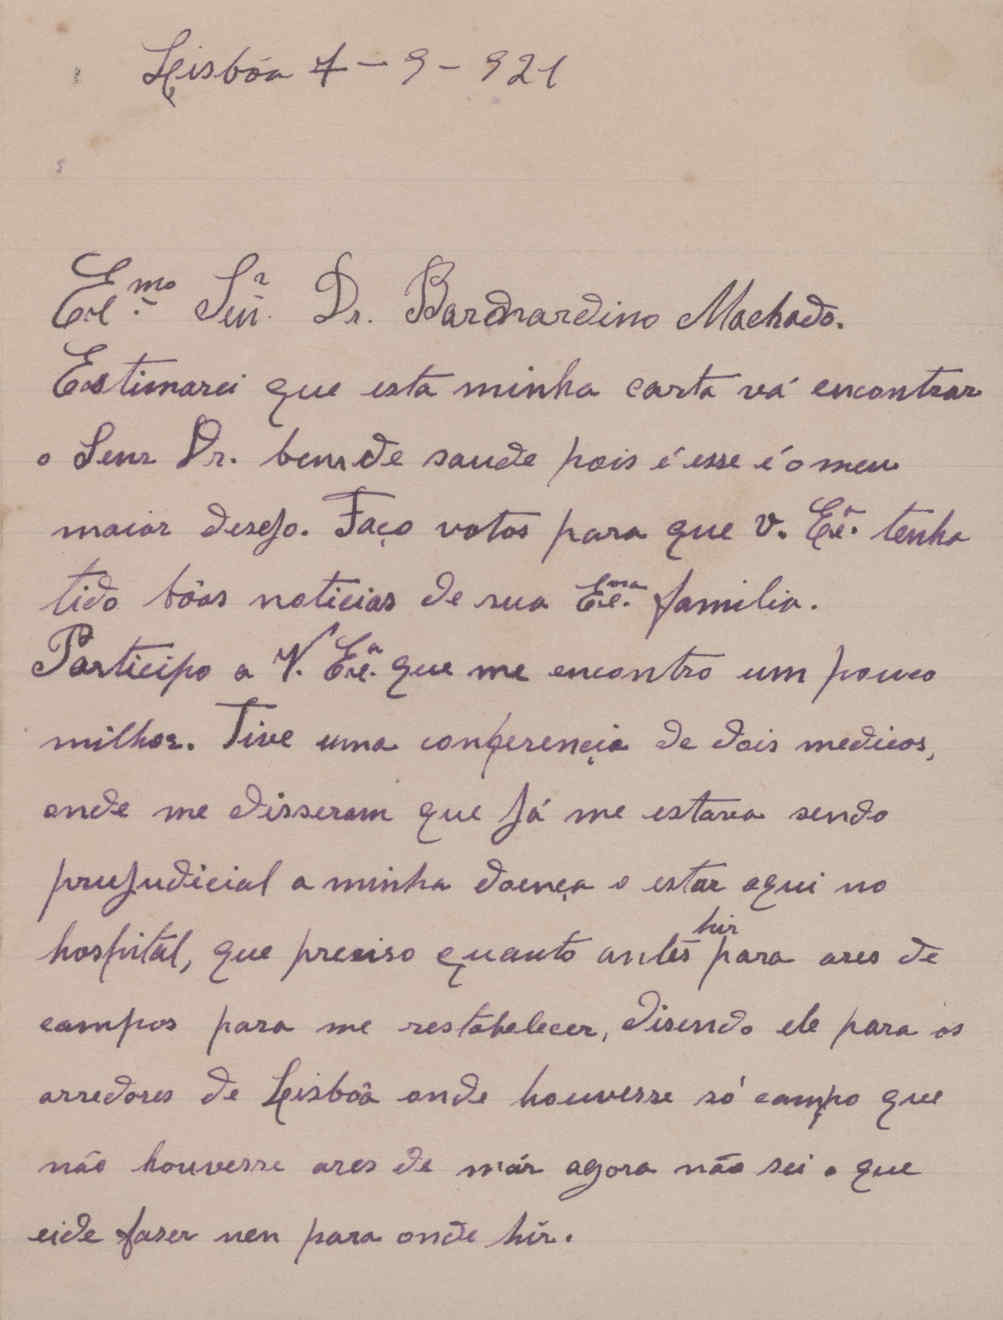 Lisbôa 7-9-921
Exl.mo Senr. Dr. Barnardino Machado.
Estimarei que esta minha carta vá encontrar
o Senr Dr. bem de saude pois é esse é o meu
maior desejo. Faço votos para que V. Exª. tenha
tido bôas noticias de sua Exl.ma familia.
Participo a V. Exª. que me encontro um pouco
milhor. Tive uma conferençia de dois medicos,
onde me disseram que já me estava sendo
prujudicial a minha doença o estar aqui no
hospital, que preciso quanto antes hir para ares de
campos para me restabelecer, disendo ele para os
arredores de Lisbôa onde houvesse só campo que
não houvesse ares de már agora não sei o que
eide faser nen para onde hir.